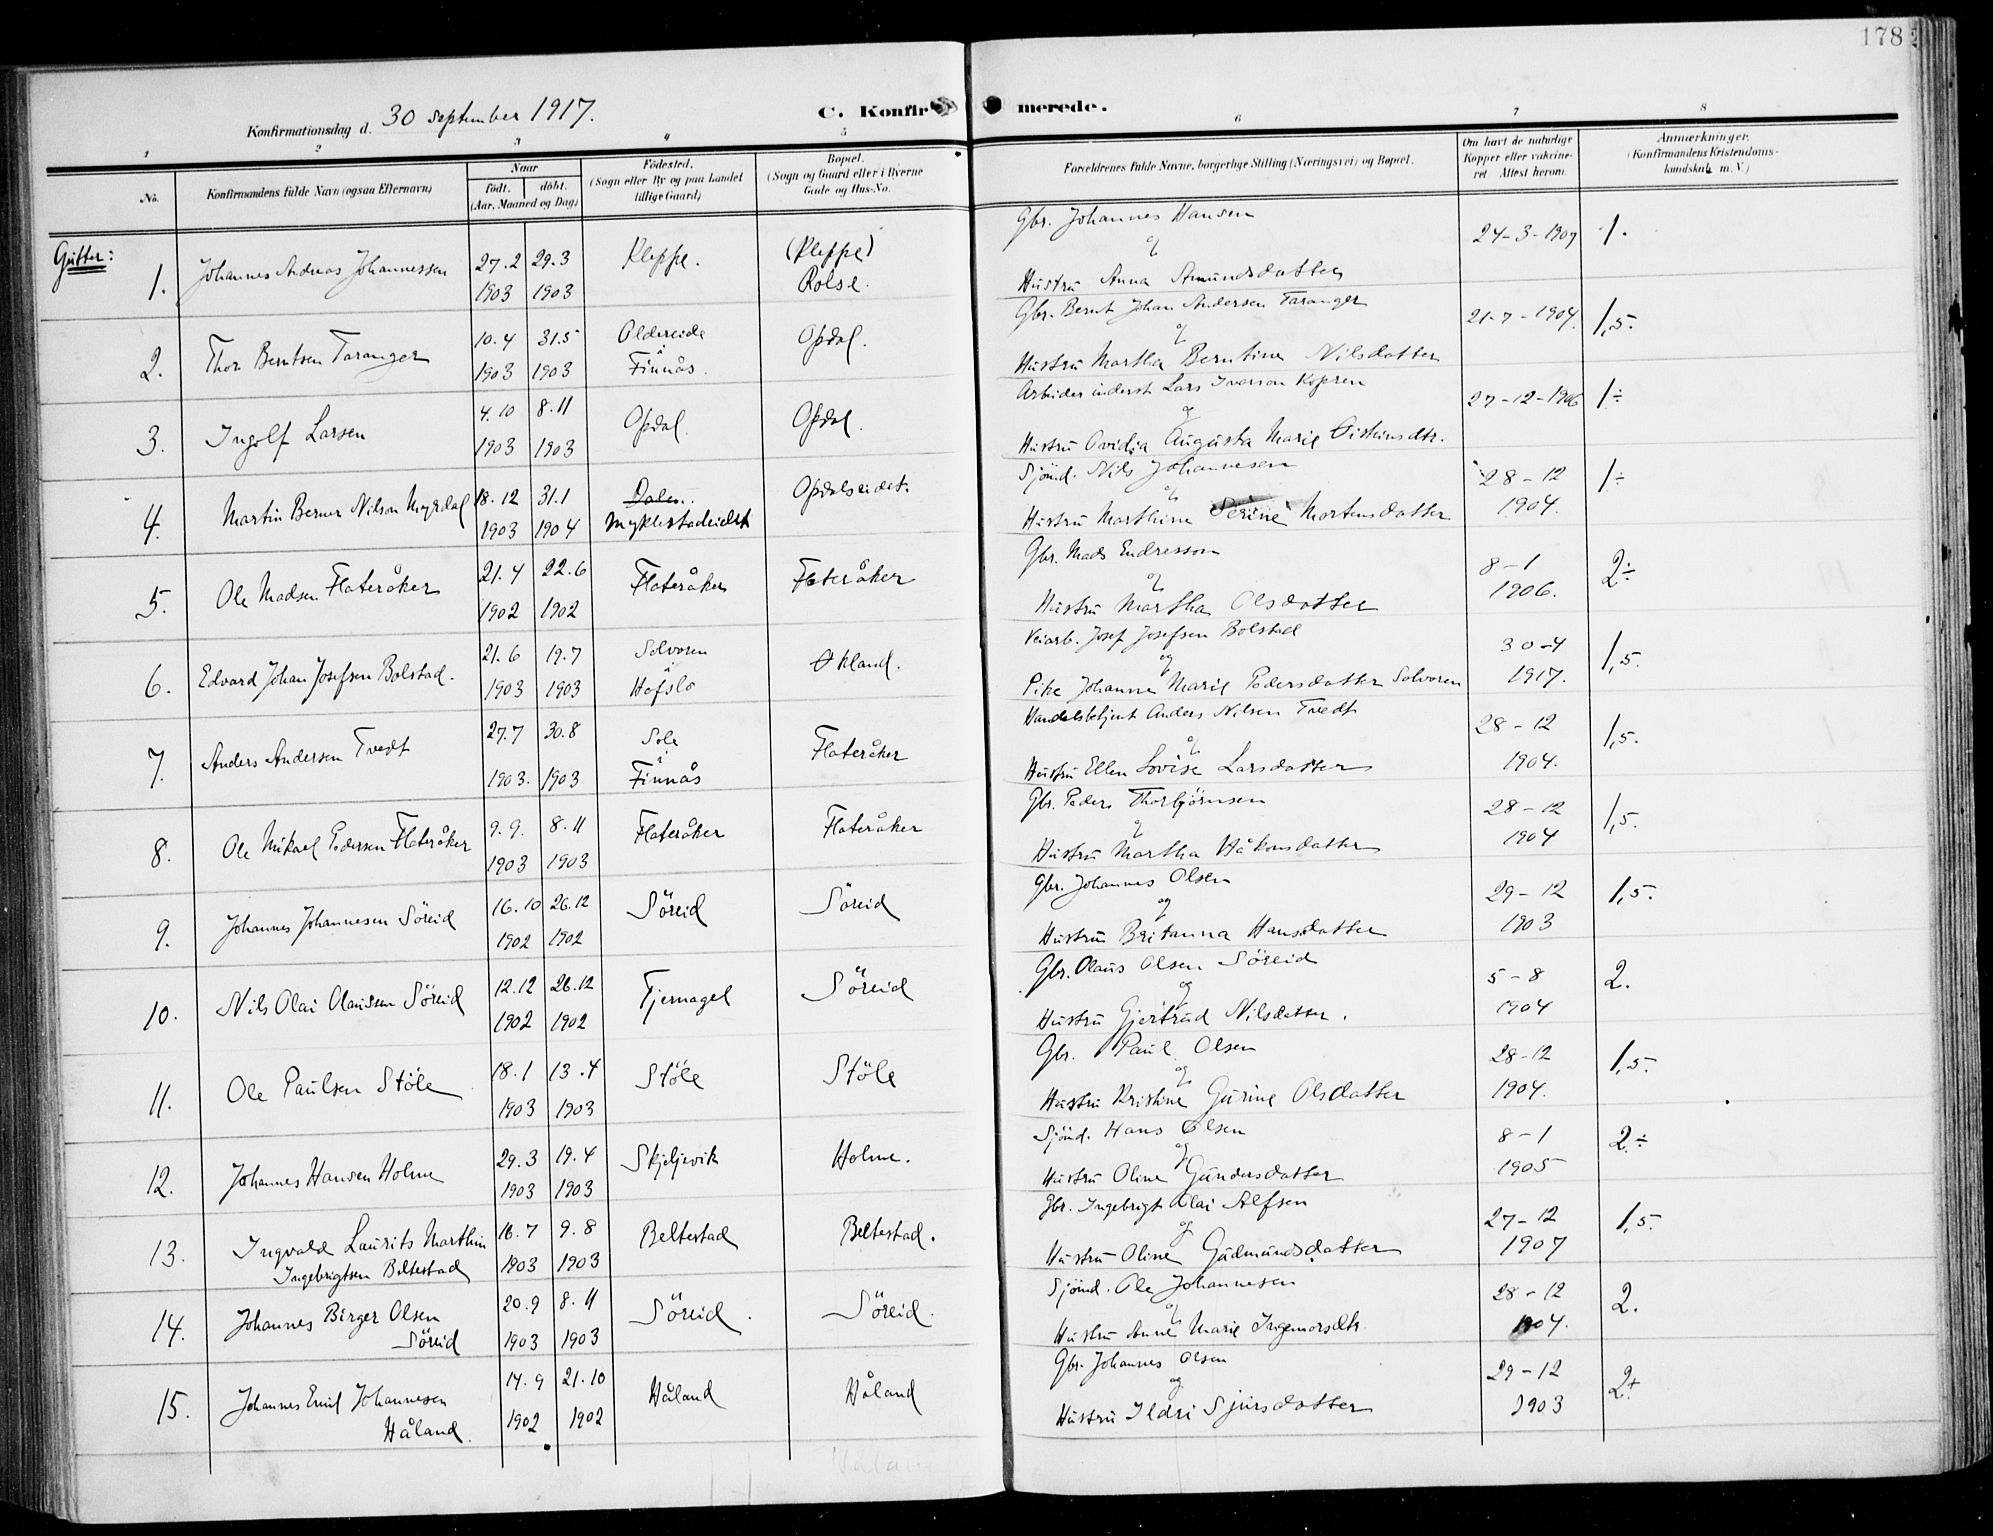 178
Konfirmationsdag d. 30 september 1917.
C. Konfirmerede.
1 2 3 4 5 6 7 8
No.
Konfirmandens fulde Navn (ogsaa Efternavn)
Naar
födt. döbt.
(Aar, Maaned og Dag)
Födested.
(Sogn eller By og paa Landet
tillige Gaard)
Bopæl.
(Sogn og Gaard eller i Byerne
Gade og Hus-No.
Forældrenes fulde Navne, borgerlige Stilling (Næringsvei) og Bopæl.
Om havt de naturlige
Kopper eller vakcine-
ret Attest herom.
Anmærkninger.
(Konfirmandens Kristendoms-
kundskab m. V.)
Gutter:
1. Johannes Andreas Johannessen 27.2 1903 29.3 1903 Kleppe. (Kleppe) Rolse.
Gbr. Johannes Hansen
og
Hustru Anna Amundsdatter
24-3-1907 1.
2. Thor Berntsen Taranger 10.4 1903 31.5 1903 Oldereide i Finnås. Opdal.
Gbr. Bernt Johan Andersen Taranger
og
Hustru Martha Berntine Nilsdatter
21-7-1904. 1,5.
3. Ingolf Larsen 4.10 1903 8.11 1903 Opdal. Opdal.
Arbeider inderst Lars Iverson Kopren
og
Hustru Ovidia Augusta Marie Distinsdtr.
27-12-1906 1÷
4. Martin Berner Nilson Myrdal 18.12 1903 31.1 1904 Dalen. Myklestadeidet Opdalseidet.
Sjömd. Nils Johannesen
og
Hustru Marthine Serine Martensdatter
28-12 1904. 1÷
5. Ole Madsen Flateråker 21.4 1902 22.6 1902 Flateråker Flateråker
Gbr. Mads Endresson
og
Hustru Martha Olsdatter
8-1 1906. 2÷
6. Edvard Johan Josefsen Bolstad. 21.6 1903 19.7 1903 Solvoren i Hafslo Økland.
Veiarb. Josef Josefsen Bolstad
og
Pike Johanne Marie Pedersdatter Solvoren
30-4 1917. 1,5.
7. Anders Andersen Tvedt 27.7 1903. 30.8 1903 Sole i Finnås Flateråker
Handelsbetjent Anders Nilsen Tvedt
og
Hustru Ellen Lovise Larsdatter
28-12 1904. 1,5.
8. Ole Mikael Pedersen Flateråker 9.9. 1903 8.11 1903 Flateråker Flateråker
Gbr. Peder Thorbjörnsen
og
Hustru Martha Håkonsdatter
28-12 1904 1,5.
9. Johannes Johannesen Söreid 16.10 1902 26.12 1902 Söreid Söreid
Gbr. Johannes Olsen
og
Hustru Britanna Hansdatter
29-12 1903 1,5.
10. Nils Olai Olaussen Söreid 12.12 1902 26.12 1902 Tjernagel Söreid
Gbr. Olaus Olsen Söreid
og
Hustru Gjertrud Nilsdatter.
5-8 1904 2.
11. Ole Paulsen Stöle 18.1 1903 13.4 1903 Stöle Stöle
Gbr. Paul Olsen
og
Hustru Kristine Gurine Olsdatter
28-12 1904. 1,5.
12. Johannes Hansen Holme 29.3 1903 19.4 1903 Skjeljevik Holme.
Sjömd. Hans Olsen
og
Hustru Oline Gundersdatter
8-1 1905 2÷
13. Ingvald Laurits Marthin Ingebrigtsen Beltestad 16.7 1903 9.8 1903 Beltestad Beltestad.
Gbr. Ingebrigt Olai Alfsen
og
Hustru Oline Gudmundsdatter
27-12 1907 1,5.
14. Johannes Birger Olsen Söreid 20.9 1903 8.11 1903 Söreid. Söreid.
Sjömd. Ole Johannesen
og
Hustru Anne Marie Ingemorsdtr.
28-12 1904. 2.
15. Johannes Emil Johannesen Håland. 14.9 1902 21.10 1902 Håland Håland
Gbr. Johannes Olsen
og
Hustru Ildri Sjursdatter
29-12 1903 2+